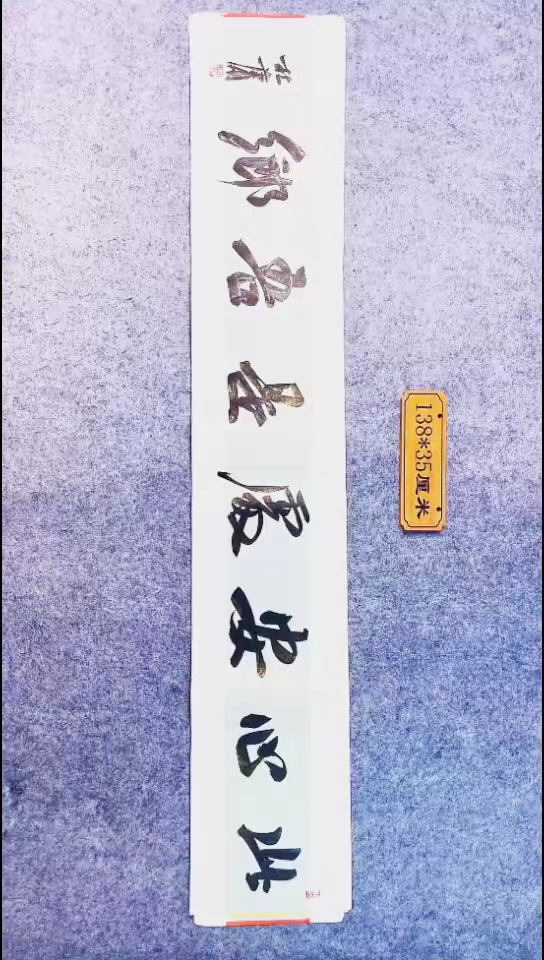 此心安處是吾鄉
138*35厘米